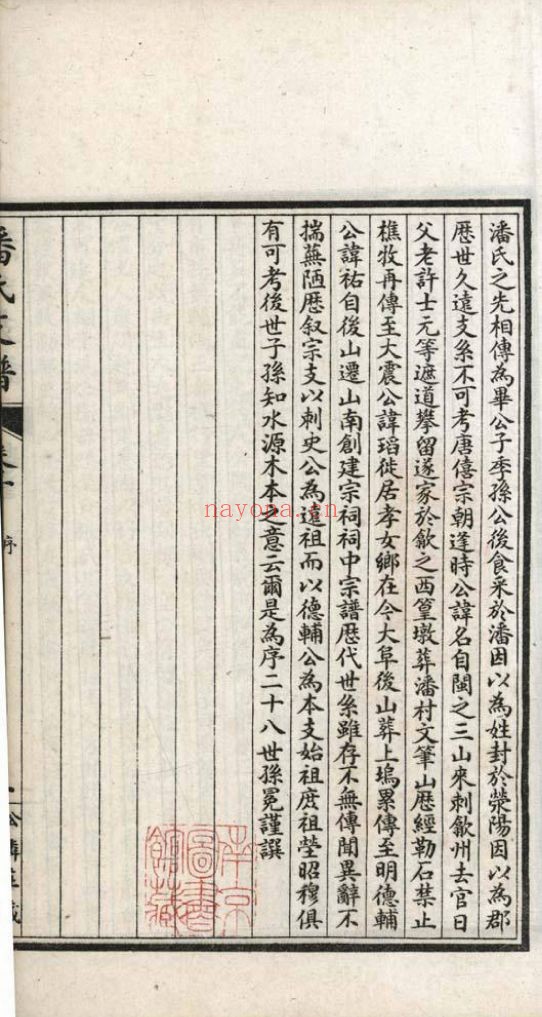 潘氏之先相傳為畢公子季孫公後食采於潘因以為姓封於滎陽因以為郡
歴世久遠支系不可考唐僖宗朝逢時公諱名自閩之三山來刺歙州去官日
父老許士元等遮道攀留遂家於歙之西篁墩葬潘村文筆山歴經勒石禁止
樵牧再傳至大震公諱瑫徙居孝女鄉在今大阜後山葬上塢累傳至明德輔
公諱祐自後山遷山南創建宗祠祠中宗譜歴代世系雖存不無傳聞異辭不
揣蕪陋歴叙宗支以刺史公為遠祖而以德輔公為本支始祖庻祖塋昭穆俱
有可考後世子孫知水源木本之意云爾是為序二十八世孫冕謹譔
潘氏支譜
卷
序
一
松鱗莊
南京
圖書
館藏
nayona.cn